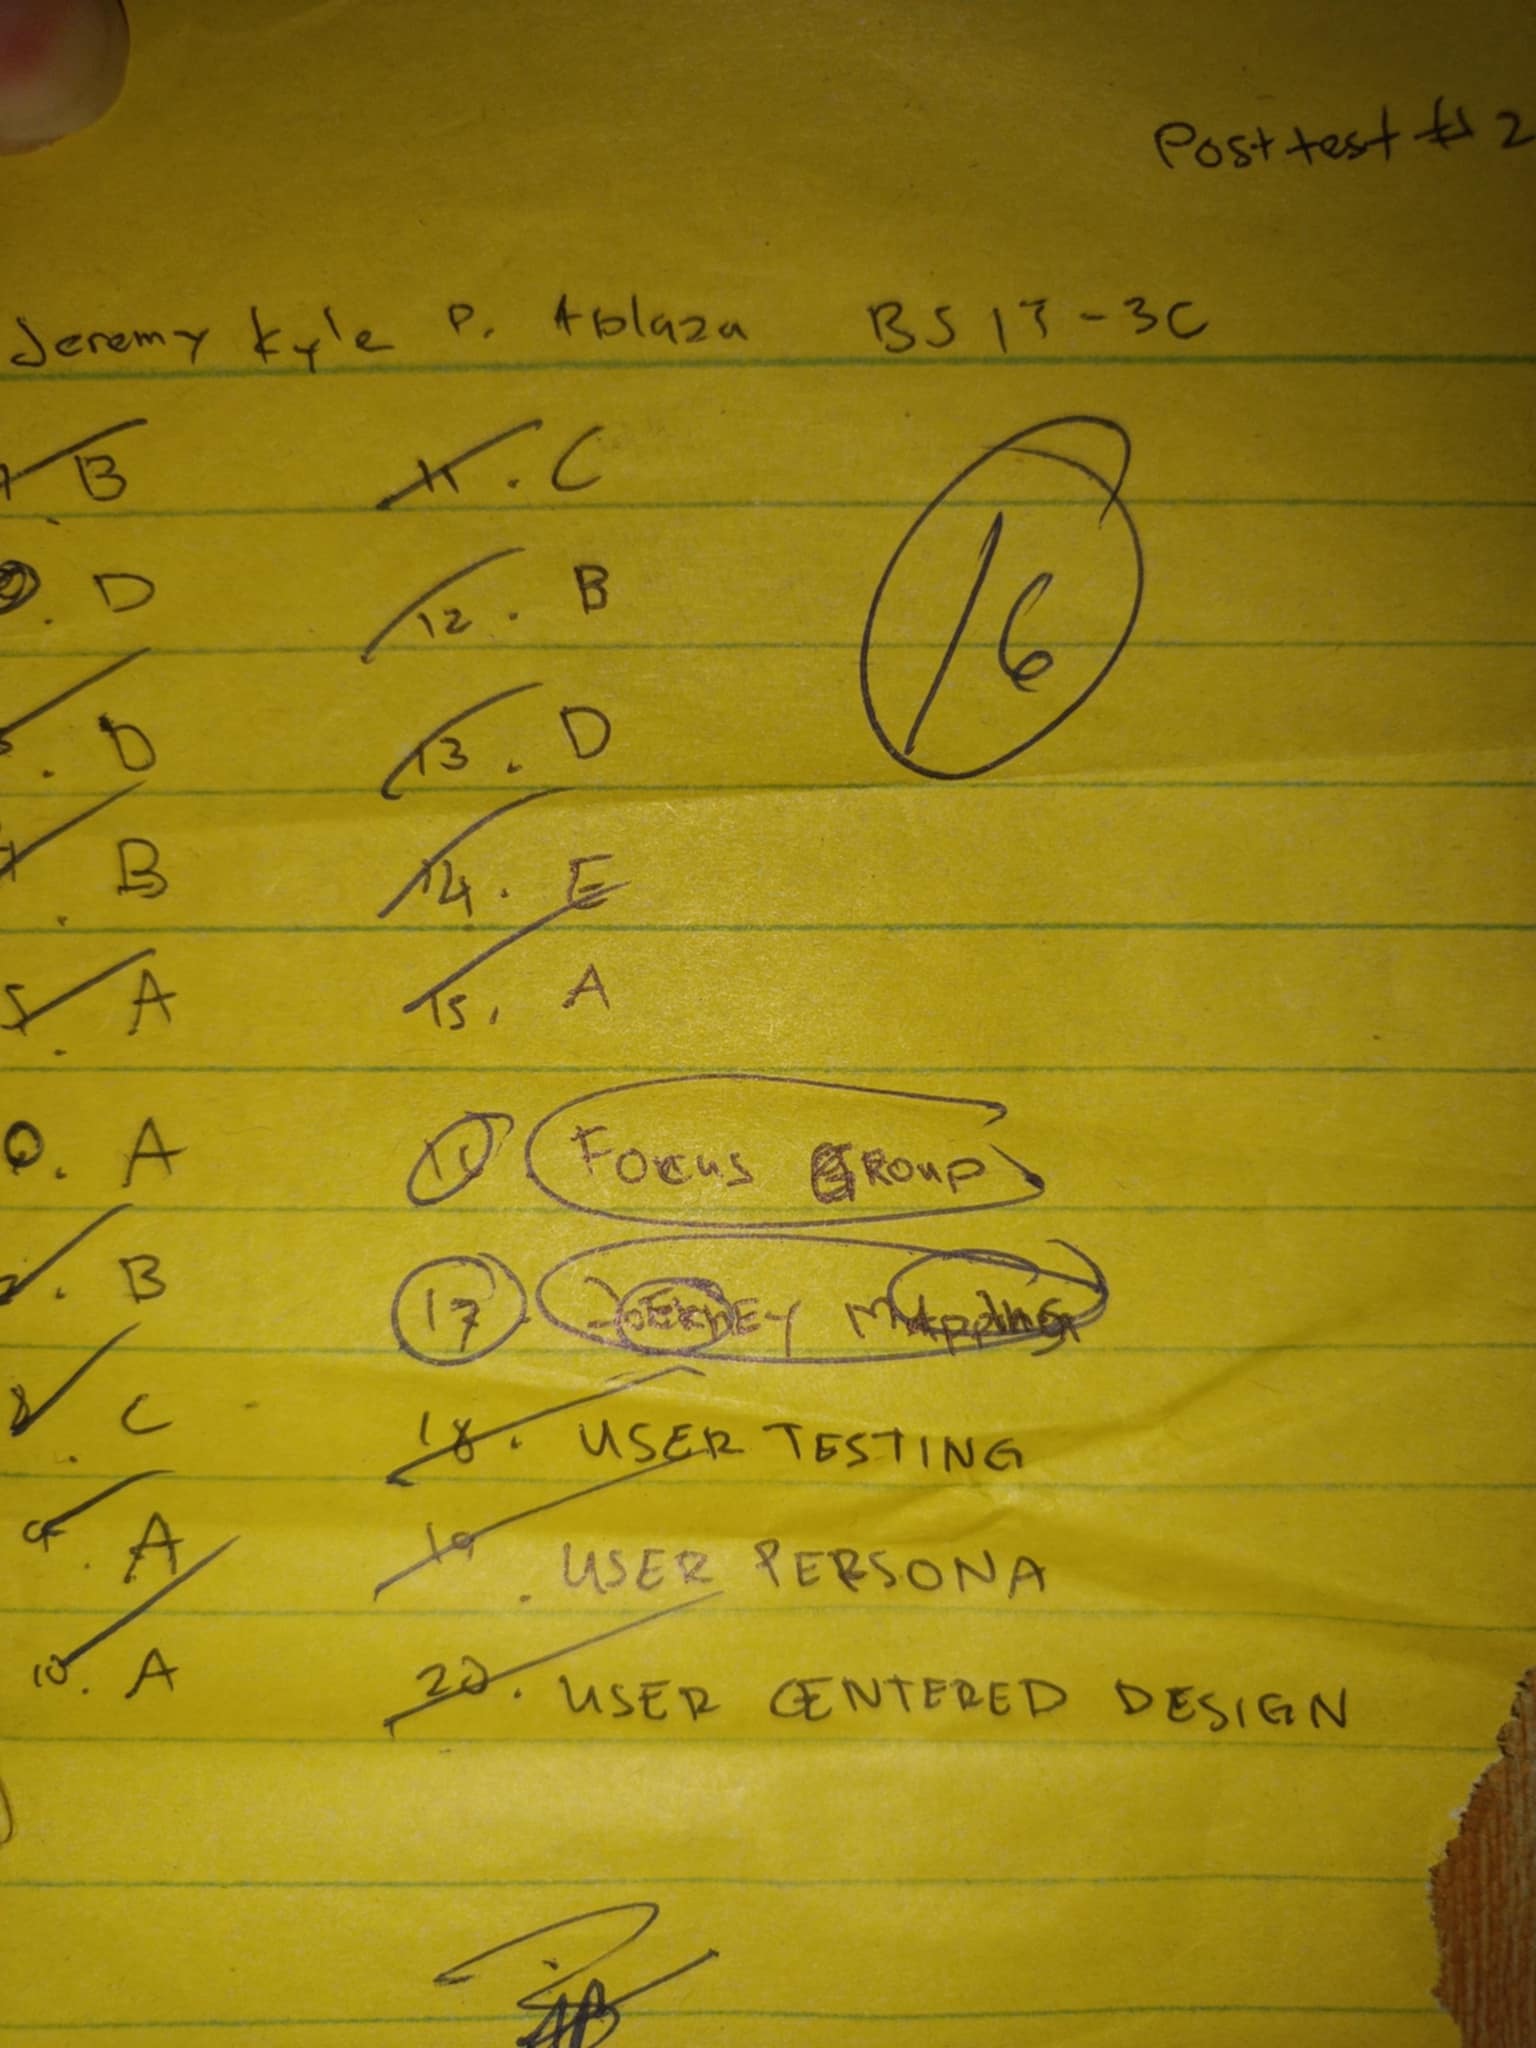 Posttest # 2
Jeremy Kyle P. Ablaza BSIT-3C
B
. D
. D
. B
5. A
. A
. B
8. C
9. A
10. A
11. C
12. B
13. D
14. E
15. A
Focus GROUP
17. JOERNEY MAPPING
18. USER TESTING
19. USER PERSONA
20. USER CENTERED DESIGN
16